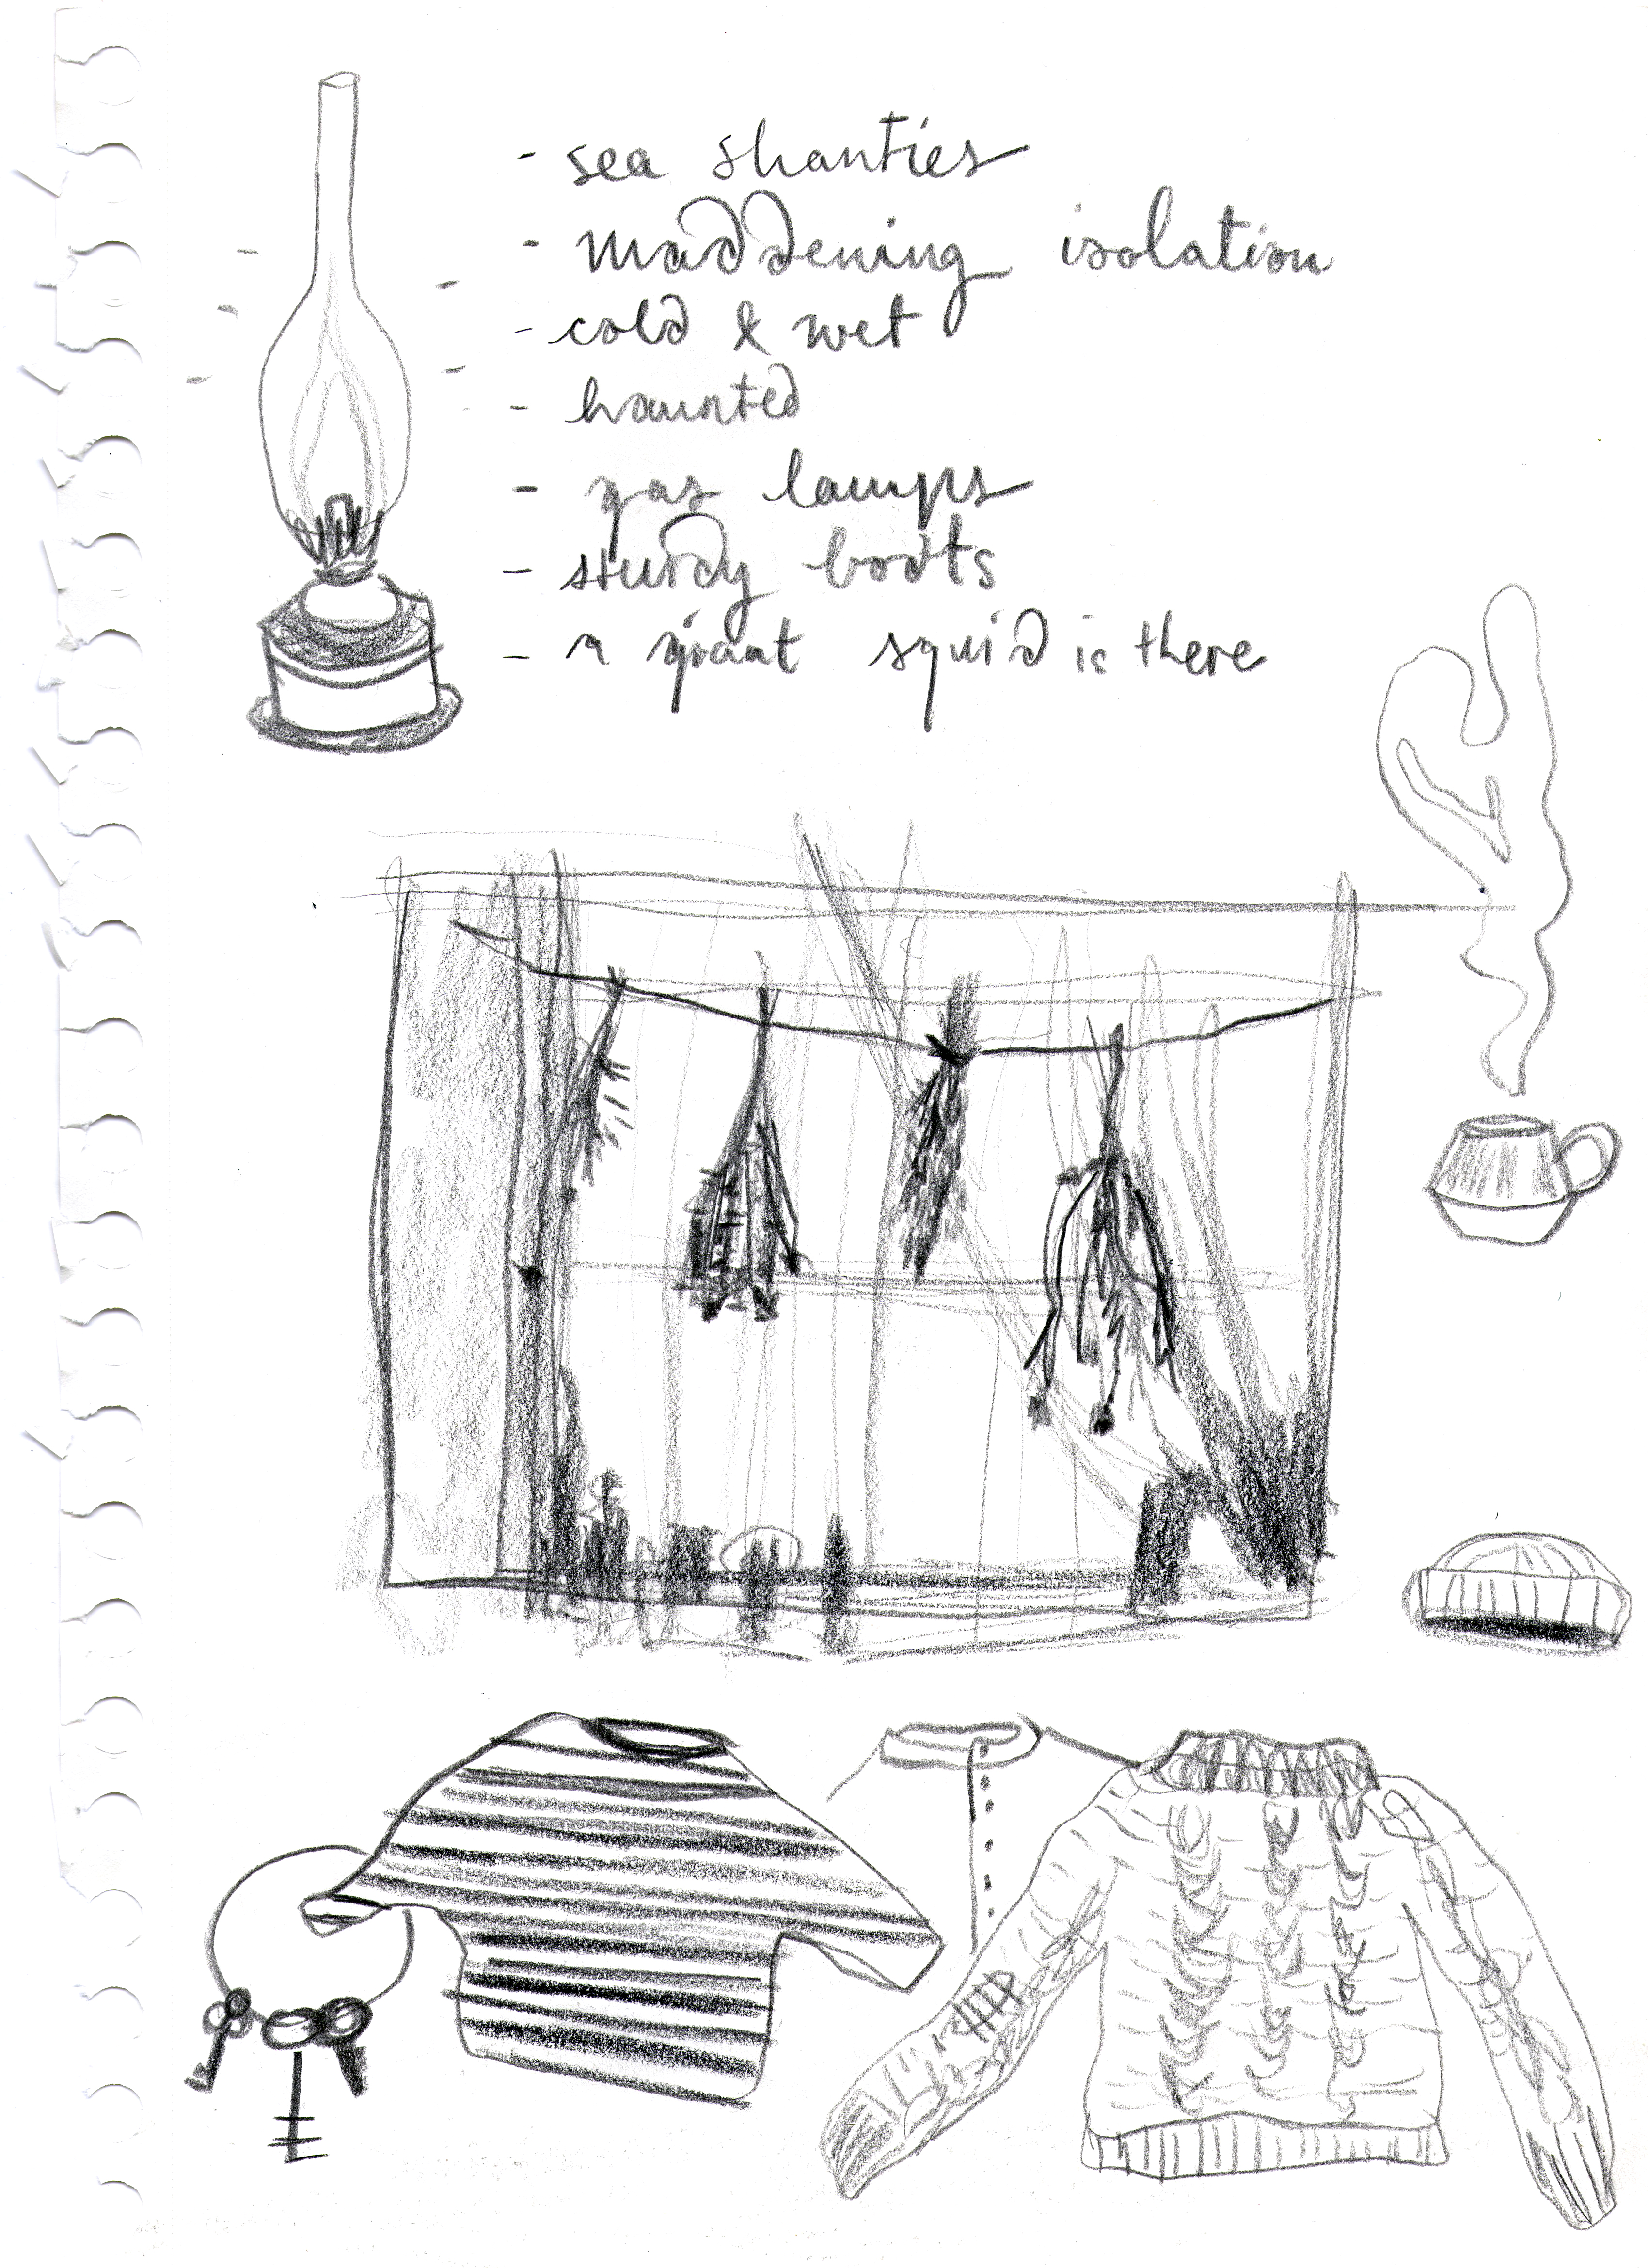 - sea shanties
- maddening isolation
- cold & wet
- haunted
- gas lamps
- sturdy boots
- a giant squid is there